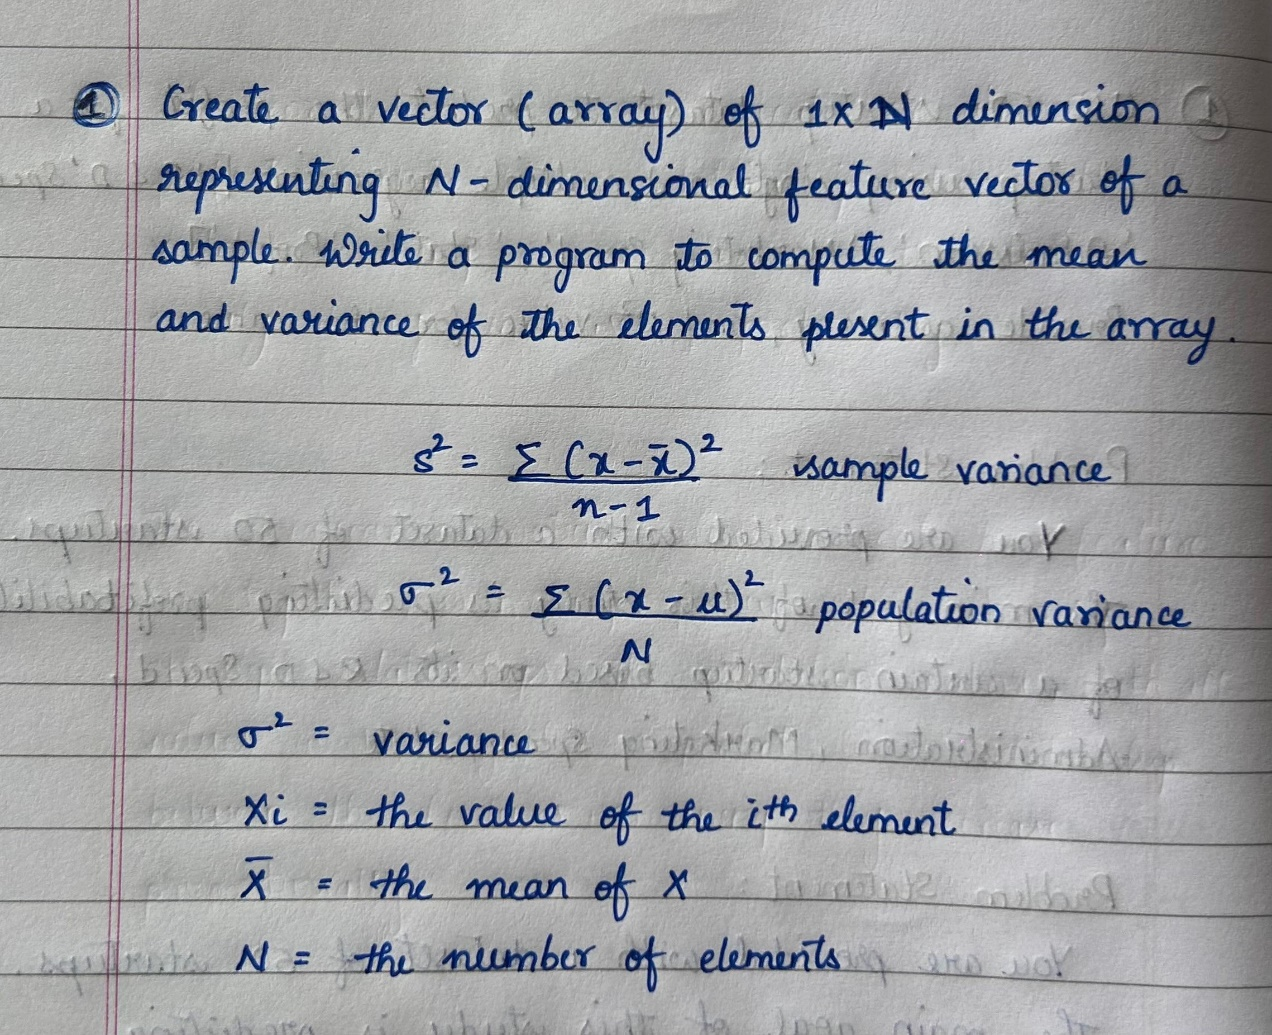 ① Create a vector (array) of 1x N dimension
representing N-dimensional feature vector of a
sample. Write a program to compute the mean
and variance of the elements present in the array.
s² = Σ (x-x̄)² sample variance
n-1
σ² = Σ (x-μ)² population variance
N
σ² = variance
Xi = the value of the ith element
X̄ = the mean of X
N = the number of elements